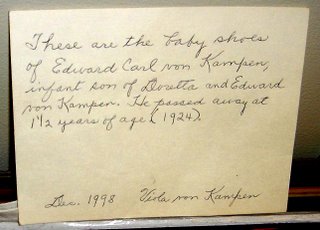 These are the baby shoes
of Edward Carl von Kampen,
infant son of Doretta and Edward
von Kampen. He passed away at
1½ years of age (1924).
Dec. 1998 Viola von Kampen